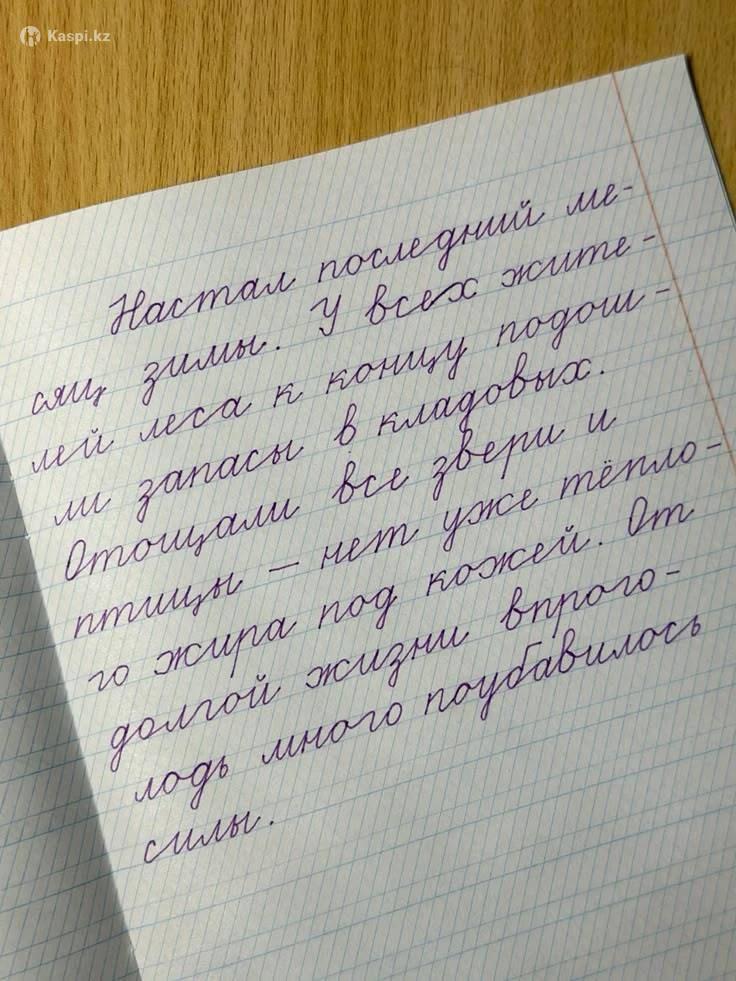 Kaspi.kz
Настал последний ме-
сяц зимы. У всех жите-
лей леса к концу подош-
ли запасы в кладовых.
Отощали все звери и
птицы - нет уже тёпло-
го жира под кожей. От
долгой жизни впрого-
лодь много поубавилось
силы.